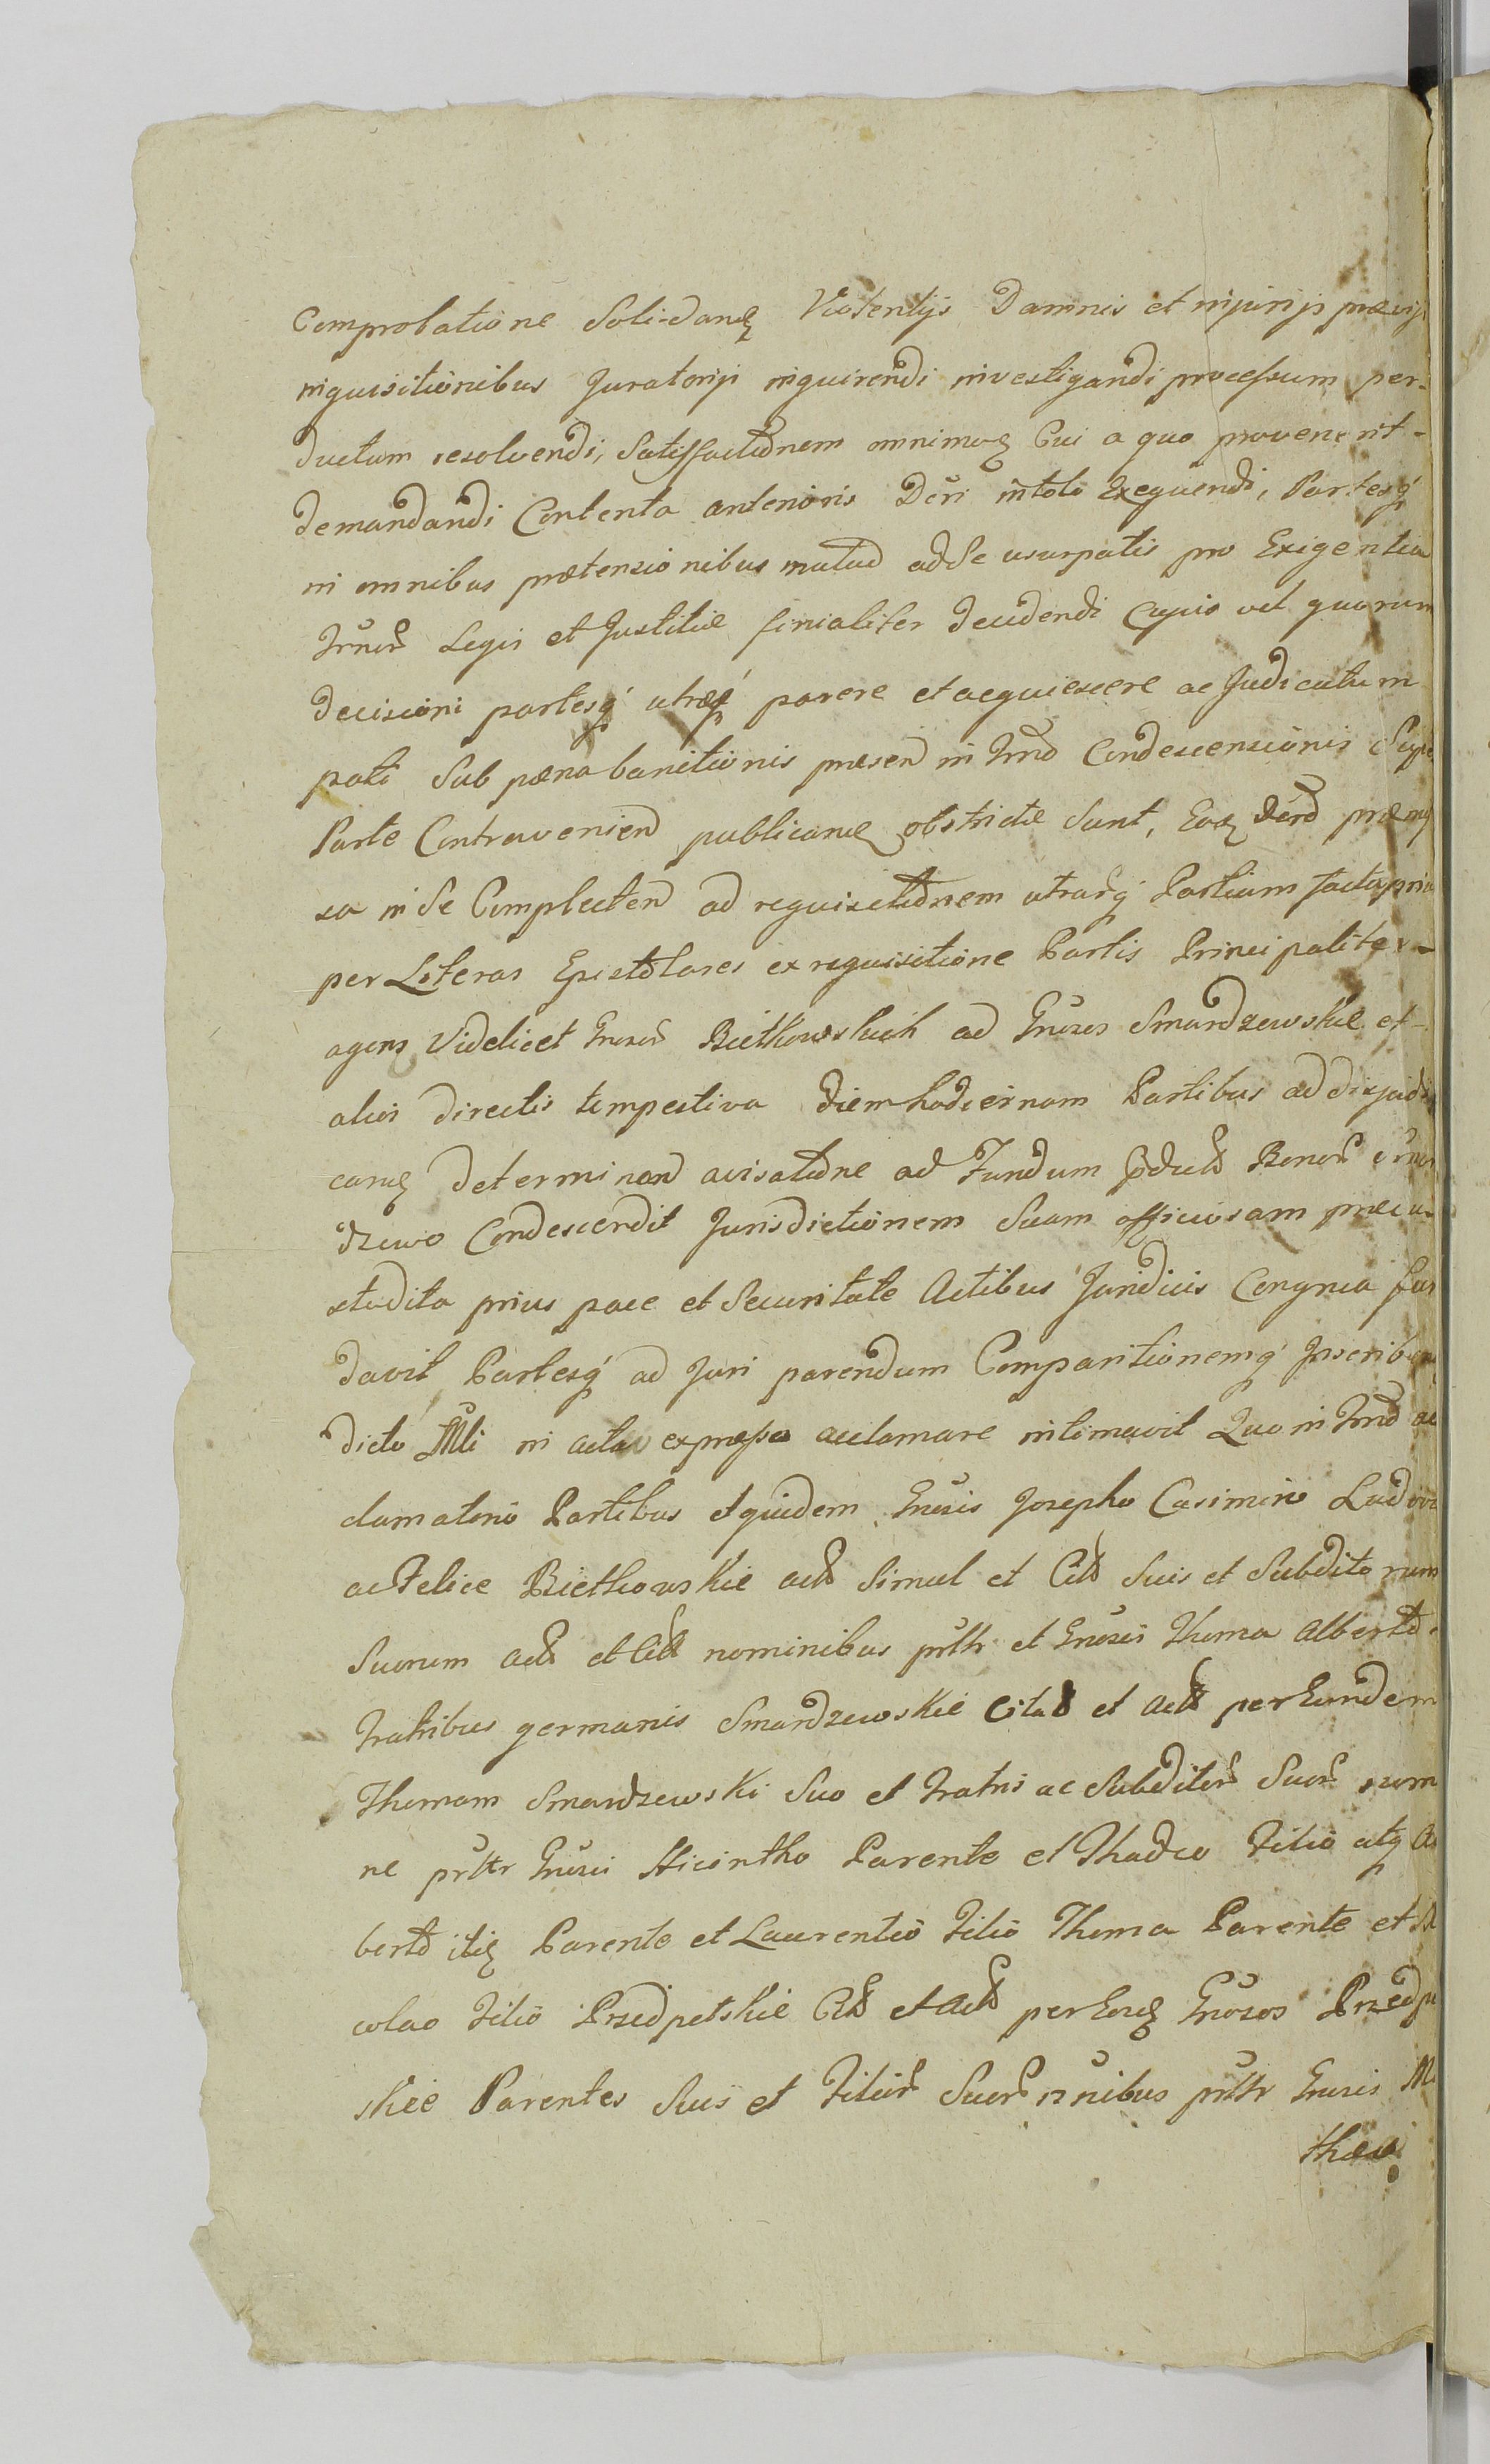 Comprobatione Solidandę Violentijs Damnis et injurijs prævijs
inquisitionibus Juratorijs inquirendi investigandi processum per-
ductum resolvendi, Satisfactionem omnimodę Cui a quo provenerit-
demandandi Contenta anterioris Dcri in toto Exequendi, Partesq́
in omnibus prætensionibus mutuo ad Se usurpatis pro Exigentia
Legis et Justitiæ finialiter decidendi Cujus vel quorum
decisioni partesq́ utræq́ parere et acquiescere ac Judicatum
pati Sub pæna banitionis præsen in Trno Condescensionis Super
Parte Contravenien publicandę obstrictæ Sunt, præmis
sa in Se Complecten ad requisitionem utrarq́ Partium facta
per Literas Epistolares ex requisitione Partis Principaliter-
agens Videlicet Grosor Biethowskich ad Grosos Smardzewskie et-
alios directis tempestiva diem hodiernam Partibus ad disjudi
candę determinan avisatione ad Fundum Bonor Smar
dzewo Condescendit Jurisdictionem Suam officiosam præcu-
stodita prius pace et Securitate Actibus Juridicis Congrua fun
davit Partesq́ ad Juri parendum Comparitionemq́ Inscriben
dicto in acta expresse acclamare intimavit Quo in Trno ac
clamatorio Partibus et quidem Grosis Josepho Casimiro Ludovi
ac Felice Biethowskie act Simul et Cit Suis et Subditorum
Suorum act et Cit nominibus prłtr et Grosis Thoma Alberto
Fratribus germanis Smardzewskie Citat et act per Eundem
Thomam Smardzewski Suo et Fratris ac Subditor Suor nomi
ne prłtr Grosis Hiacintho Parente et Thadeo Filio atq Al
berto itę Parente et Laurentio Filio Thoma Parente et Ni
colao Filio Przedpełskie Cit et act per Eosdę Grosos Przedpeł
skie Parentes Suis et Filior Suor nnibus prłtr Grosis Ma
thæo